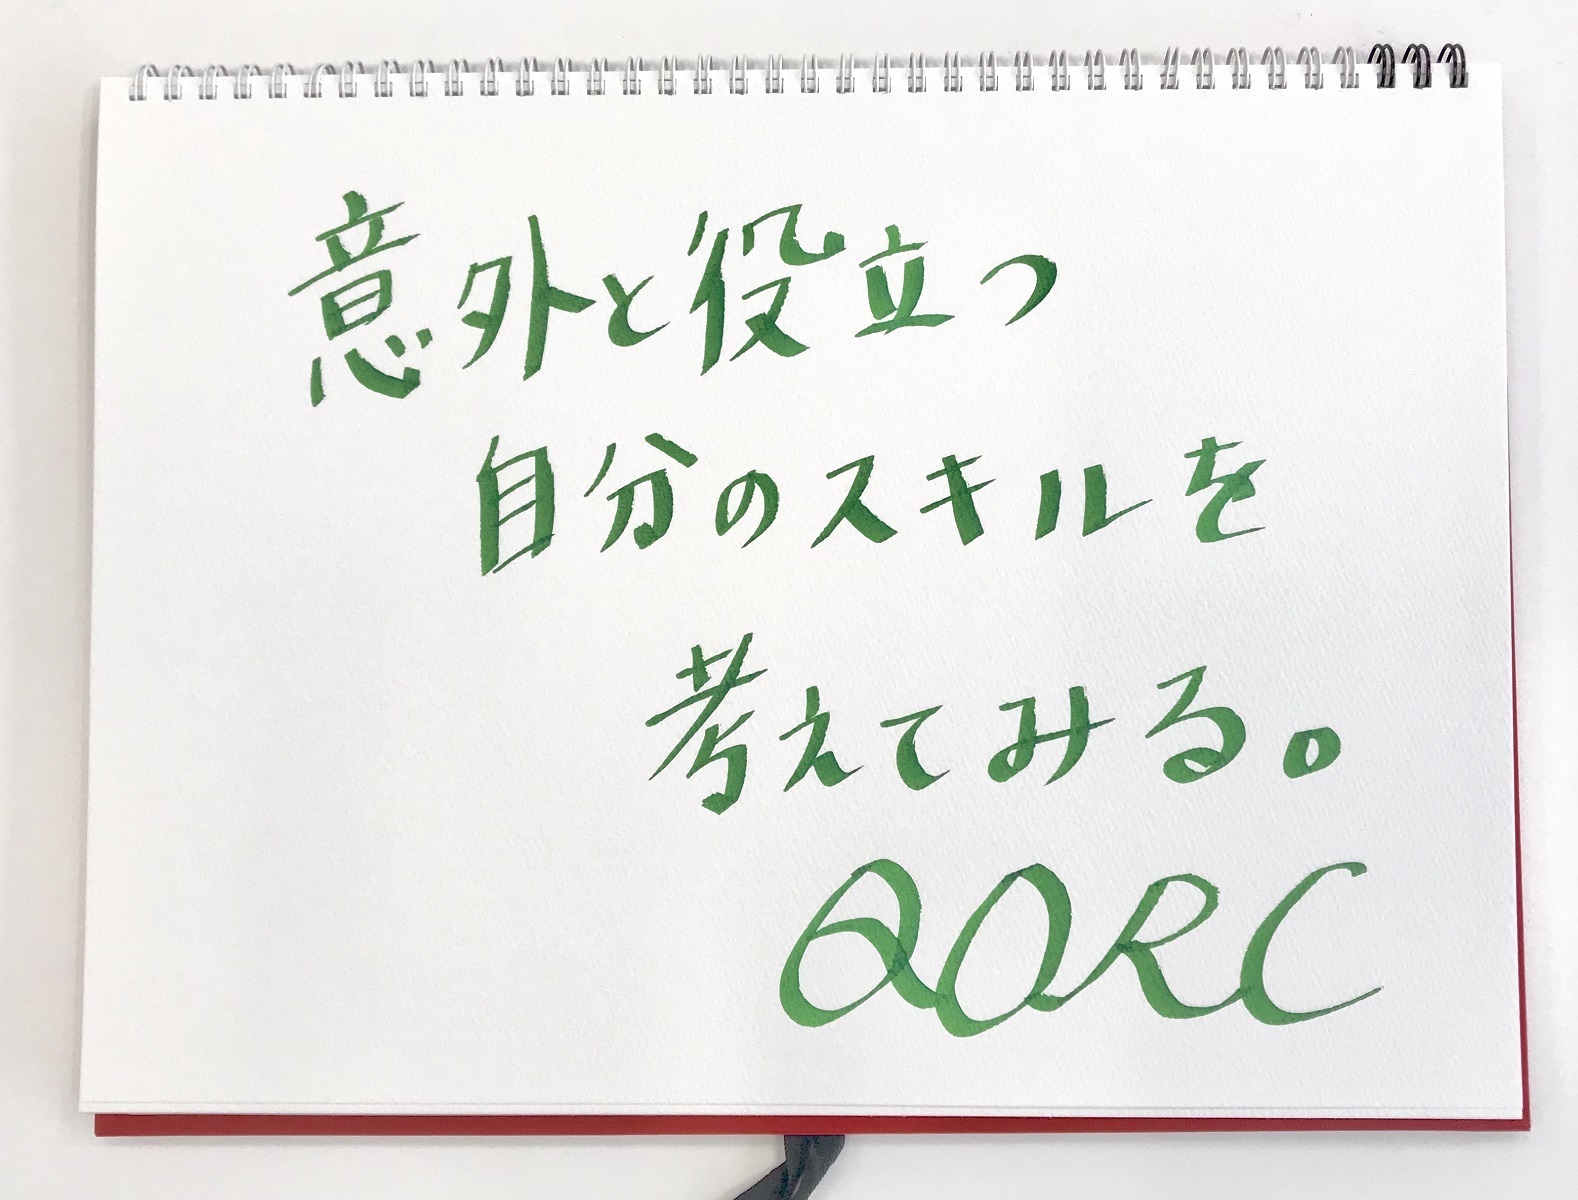 意外と役立つ
自分のスキルを
考えてみる。
QORC